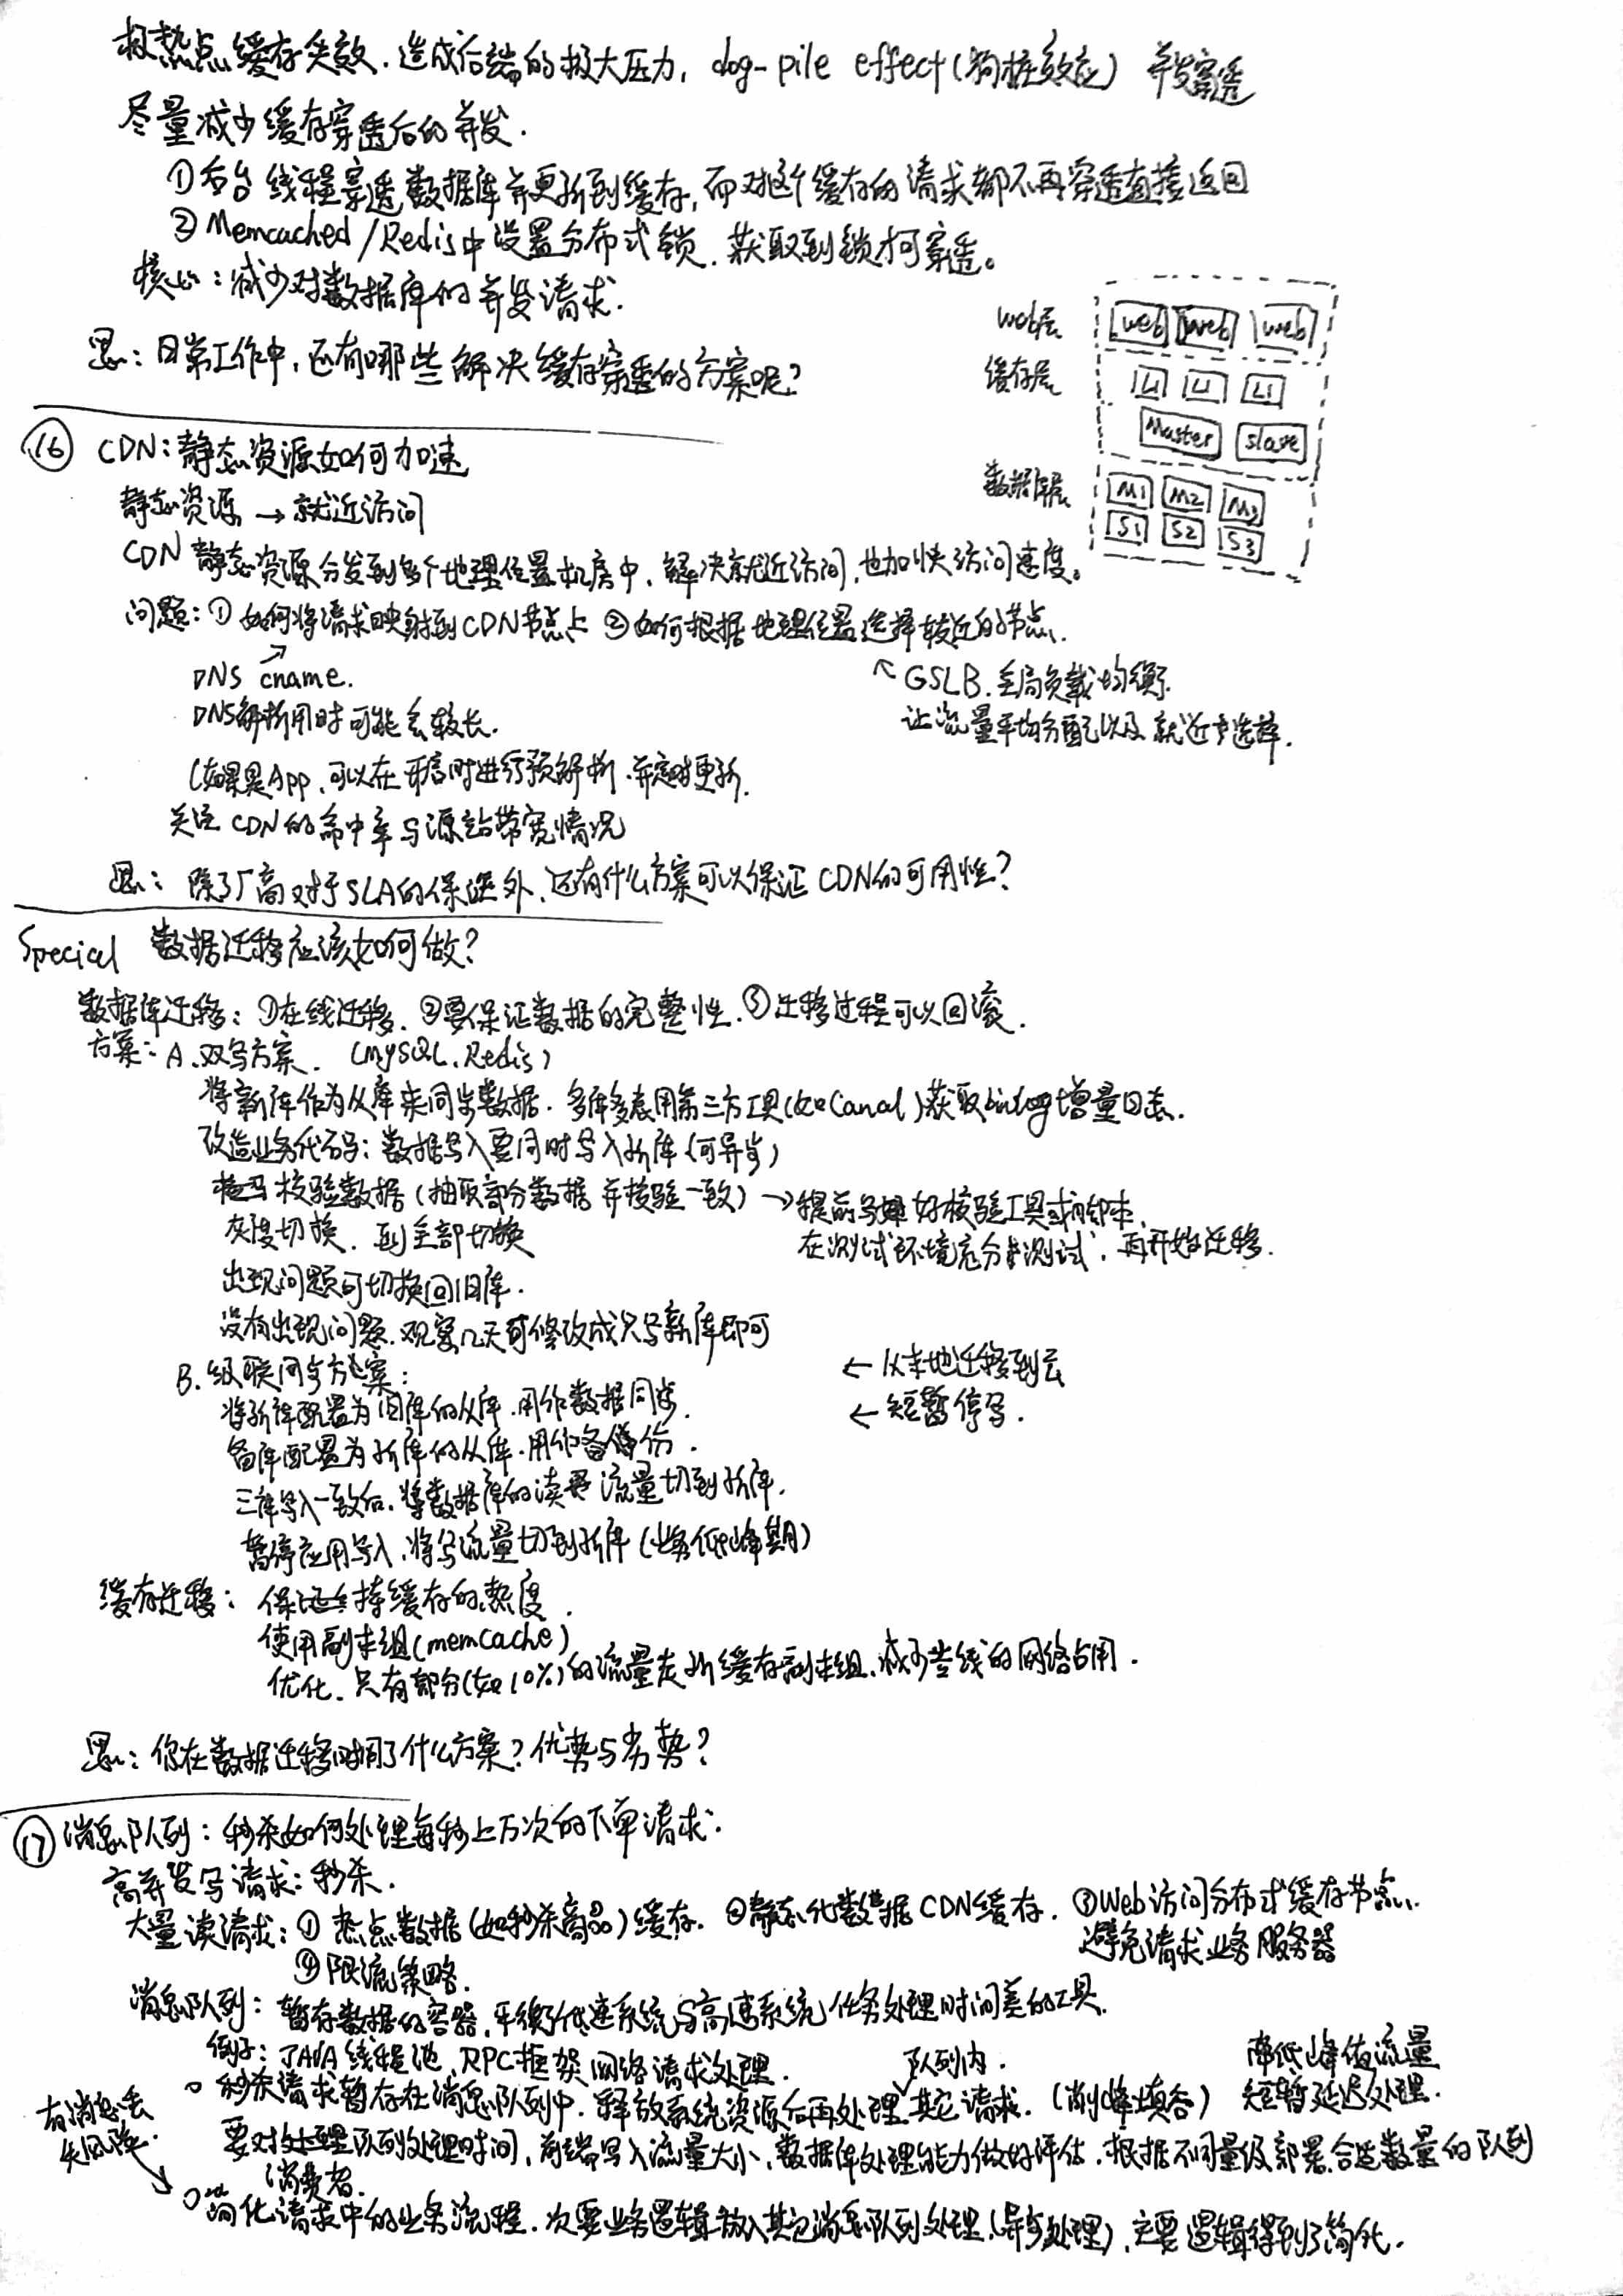 极热点缓存失效.造成后端的极大压力, dog-pile effect(狗桩效应) 并发穿透
尽量减少缓存穿透后的并发.
①后台线程穿透数据库并更新到缓存,而对这个缓存的请求都不再穿透直接返回
②Memcached/Redis中设置分布式锁.获取到锁才可穿透。
核心:减少对数据库的并发请求.
思:日常工作中,还有哪些解决缓存穿透的方案呢?
Web层 web web web
缓存层 L1 L1 L1
Master slave
数据库层 M1 M2 M3
S1 S2 S3
⑯ CDN:静态资源如何加速
静态资源→就近访问
CDN 静态资源分发到多个地理位置机房中,解决就近访问,也加快访问速度。
问题:①如何将请求映射到CDN节点上 ②如何根据地理位置选择较近的节点.
↗
DNS cname.
DNS解析用时可能会较长.
↖GSLB.全局负载均衡.
让流量平均分配以及就近选择.
(如果是App,可以在开启时进行预解析.并定时更新.
关注CDN的命中率与源站带宽情况
思:除了厂商对于SLA的保证外,还有什么方案可以保证CDN的可用性?
Special 数据迁移应该如何做?
数据库迁移:①在线迁移.②要保证数据的完整性.③迁移过程可以回滚.
方案:A.双写方案. (MySQL.Redis)
将新库作为从库来同步数据.多库多表用第三方工具(如Canal)获取binlog增量日志.
改造业务代码:数据写入要同时写入新库(可异步)
校验数据(抽取部分数据并校验一致)→提前写好校验工具或脚本,
在测试环境充分测试,再开始迁移.
灰度切换.到全部切换
出现问题可切换回旧库.
没有出现问题.观察几天可修改成只写新库即可
B.级联同步方案: ←从本地迁移到云
←短暂停写.
将新库配置为旧库的从库.用作数据同步.
备库配置为新库的从库.用作备份.
三库写入一致后,将数据库的读流量切到新库.
暂停应用写入,将写流量切到新库(业务低峰期)
缓存迁移:保持缓存的热度.
使用副本组(memcache)
优化.只有部分(如10%)的流量走新缓存副本组.减少专线的网络占用.
思:你在数据迁移时用了什么方案?优势与劣势?
⑰消息队列:秒杀如何处理每秒上万次的下单请求.
高并发写请求:秒杀.
大量读请求:①热点数据(如秒杀商品)缓存.②静态化数据CDN缓存.③Web访问分布式缓存节点.
避免请求业务服务器
④限流策略.
消息队列:暂存数据的容器,平衡低速系统与高速系统任务处理时间差的工具.
例子:JAVA线程池,RPC框架网络请求处理.
○秒杀请求暂存在消息队列中.释放系统资源后再处理队列内.其它请求.(削峰填谷) 降低峰值流量
短暂延迟处理.
要对处理队列处理时间,前端写入流量大小,数据库处理能力做好评估.根据不同量级部署合适数量的队列
消费者.
有消息丢
失风险.
○简化请求中的业务流程.次要业务逻辑放入其它消息队列处理(异步处理),主要逻辑得到了简化.